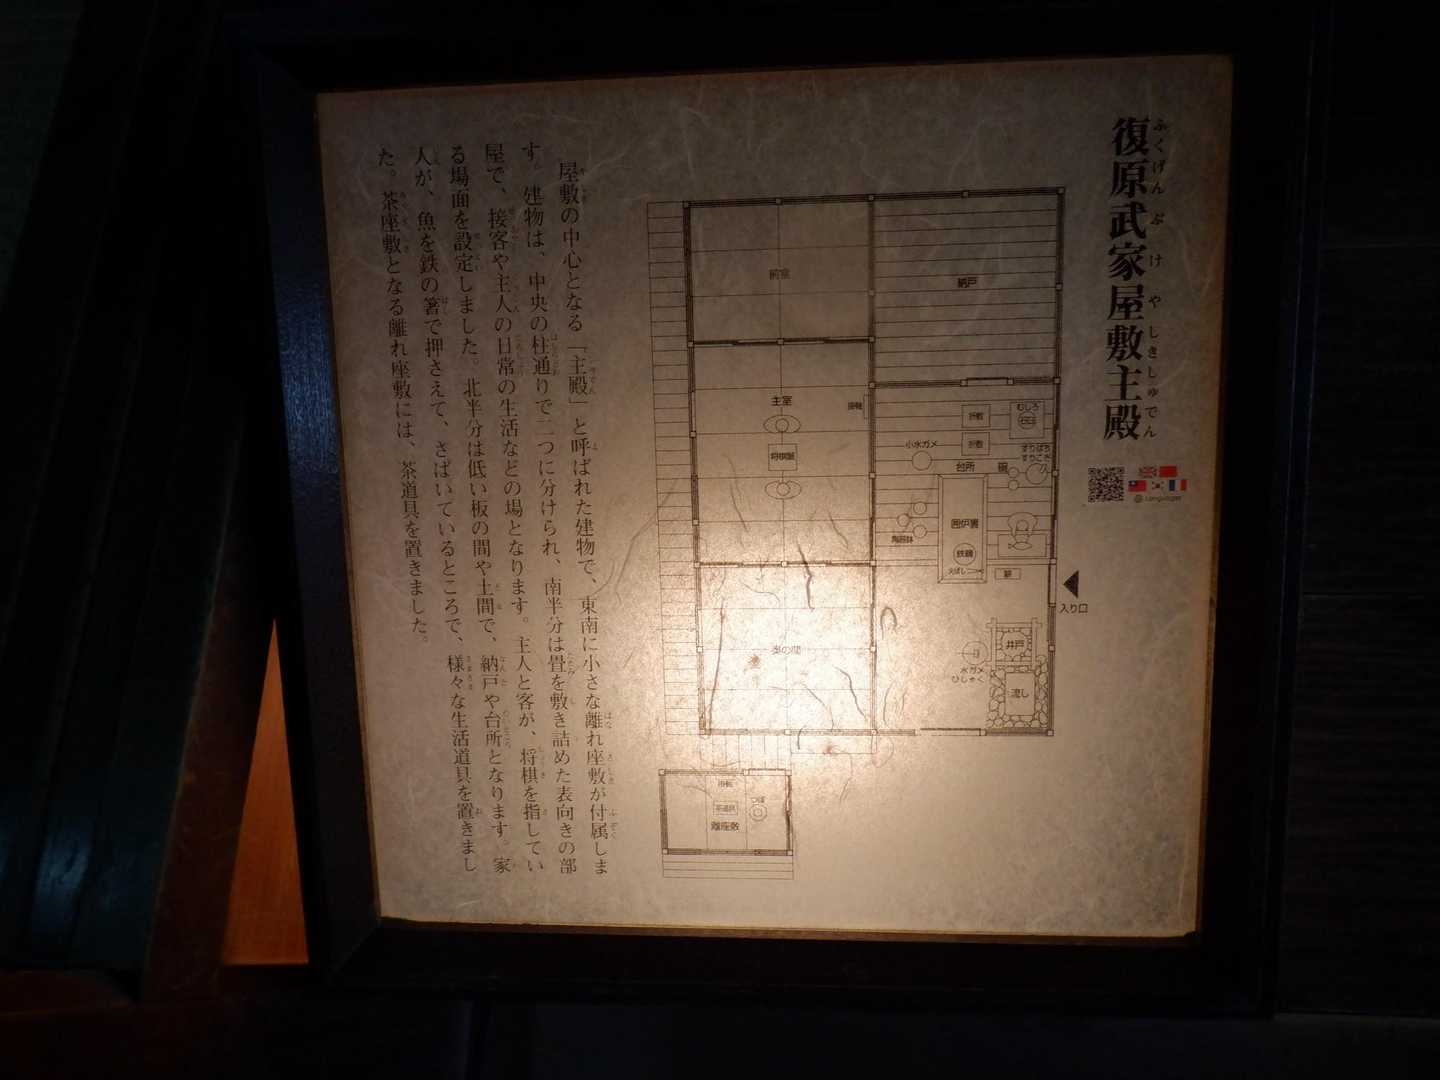 復原武家屋敷主殿
ふくげんぶけやしきしゅでん
@ Languages
納戸
前室
主室
掛軸
将棋盤
奥の間
折敷
折敷
むしろ
小水ガメ
台所
すりばち
すりこぎ
囲炉裏
鉄鍋
火ばし
入り口
井戸
流し
水ガメ
ひしゃく
掛軸
つぼ
茶道具
離座敷
屋敷の中心となる「主殿」と呼ばれた建物で、東南に小さな離れ座敷が付属しま
す。建物は、中央の柱通りで二つに分けられ、南半分は畳を敷き詰めた表向きの部
屋で、接客や主人の日常の生活などの場となります。主人と客が、将棋を指してい
る場面を設定しました。北半分は低い板の間や土間で、納戸や台所となります。家
人が、魚を鉄の箸で押さえて、さばいているところで、様々な生活道具を置きまし
た。茶座敷となる離れ座敷には、茶道具を置きました。